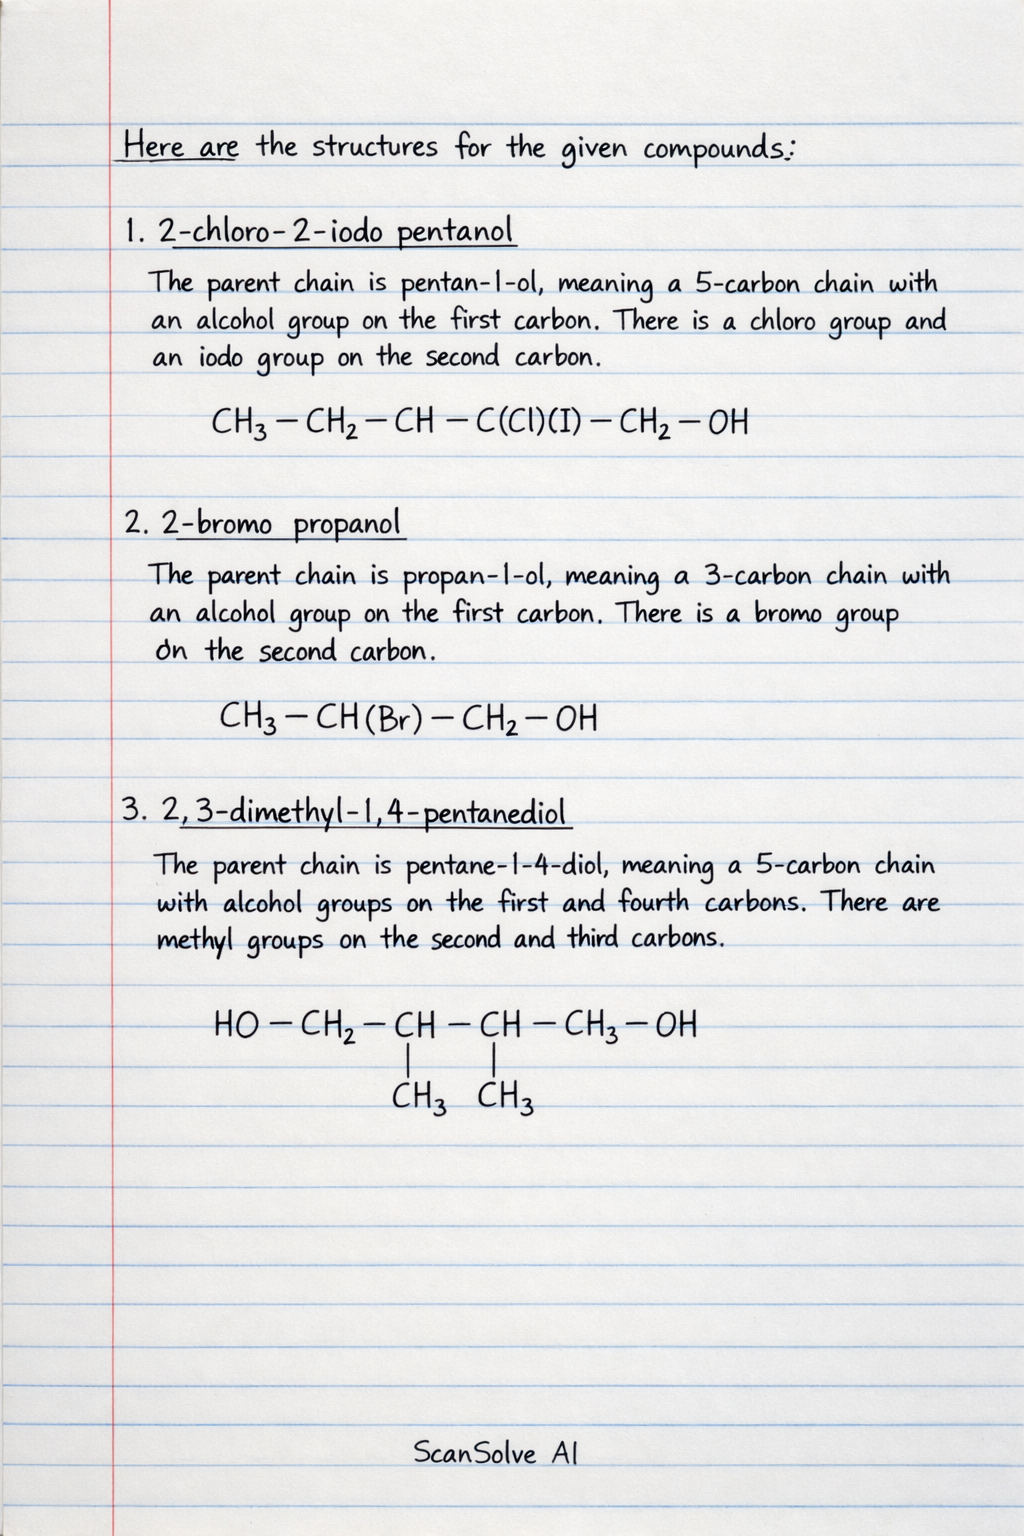 Here are the structures for the given compounds:
1. 2-chloro-2-iodo pentanol
The parent chain is pentan-1-ol, meaning a 5-carbon chain with
an alcohol group on the first carbon. There is a chloro group and
an iodo group on the second carbon.
CH₃ — CH₂ — CH — C(Cl)(I) — CH₂ — OH
2. 2-bromo propanol
The parent chain is propan-1-ol, meaning a 3-carbon chain with
an alcohol group on the first carbon. There is a bromo group
on the second carbon.
CH₃ — CH(Br) — CH₂ — OH
3. 2,3-dimethyl-1,4-pentanediol
The parent chain is pentane-1-4-diol, meaning a 5-carbon chain
with alcohol groups on the first and fourth carbons. There are
methyl groups on the second and third carbons.
HO — CH₂ — CH — CH — CH₃ — OH
| |
CH₃ CH₃
ScanSolve AI